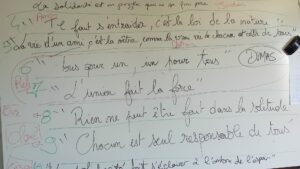 La solidarité est un progrès que ne
"Il faut s'entraider, c'est la loi de la nature"
La vie d'un ami, c'est la nôtre, comme la vraie vie de chacun est celle de tous"
6 "tous pour un, un pour tous" DUMAS
7 "L'union fait la force"
8 "Rien ne peut être fait dans la solitude"
9 "Chacun est seul responsable de tous"
l'ombre de l'espoir